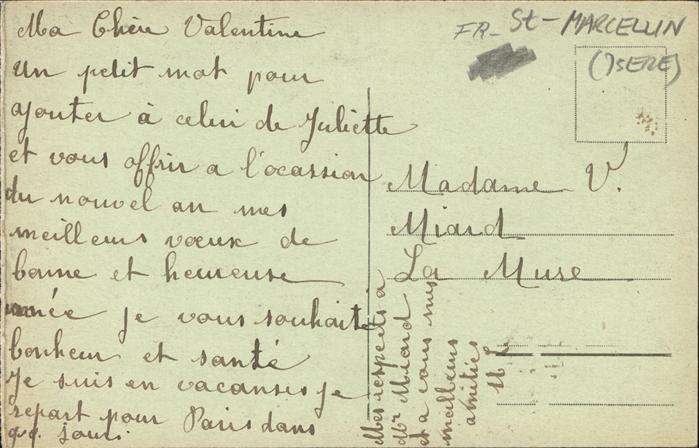 Ma Chère Valentine
un petit mot pour
ajouter à celui de Juliette
et vous offrir a l'ocassion
du nouvel an mes
meilleurs voeux de
bonne et heureuse
année je vous souhaite
bonheur et santé
Je suis en vacanses je
repart pour Paris dans
qq. jours.
Mes respects a
Mr Miard
et a vous mes
meilleurs
amitiés
FR- St- MARCELLIN
(ISERE)
Madame V.
Miard
La Muse